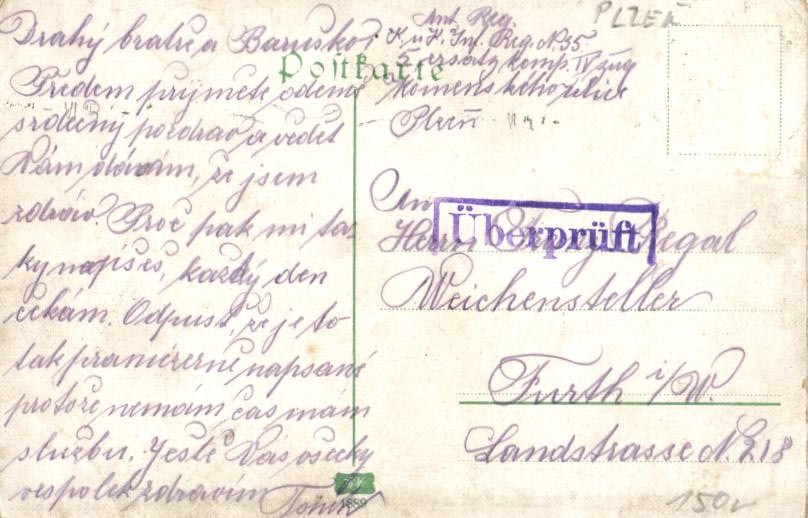 Drahý bratře a Baruško!
Předem přijmete odemě
srdečný pozdrav a vědět
Vám dávám, že jsem
zdráv. Proč pak mi ta-
ky napíšeš, každý den
čekám. Odpusť, že je to
tak napsané
protože nemám čas mám
službu. Ještě Vás všecky
vespolek zdravím
PLZEŇ
Ant. Reg.
K. u. K. Inf. Reg. N. 35
ersatz komp. IV zug
Komenského ulice
Plzeň
Postkarte
An
Herrn Regal
Überprüft
Weichensteller
Furth i/W.
Landstrasse N. 218
150